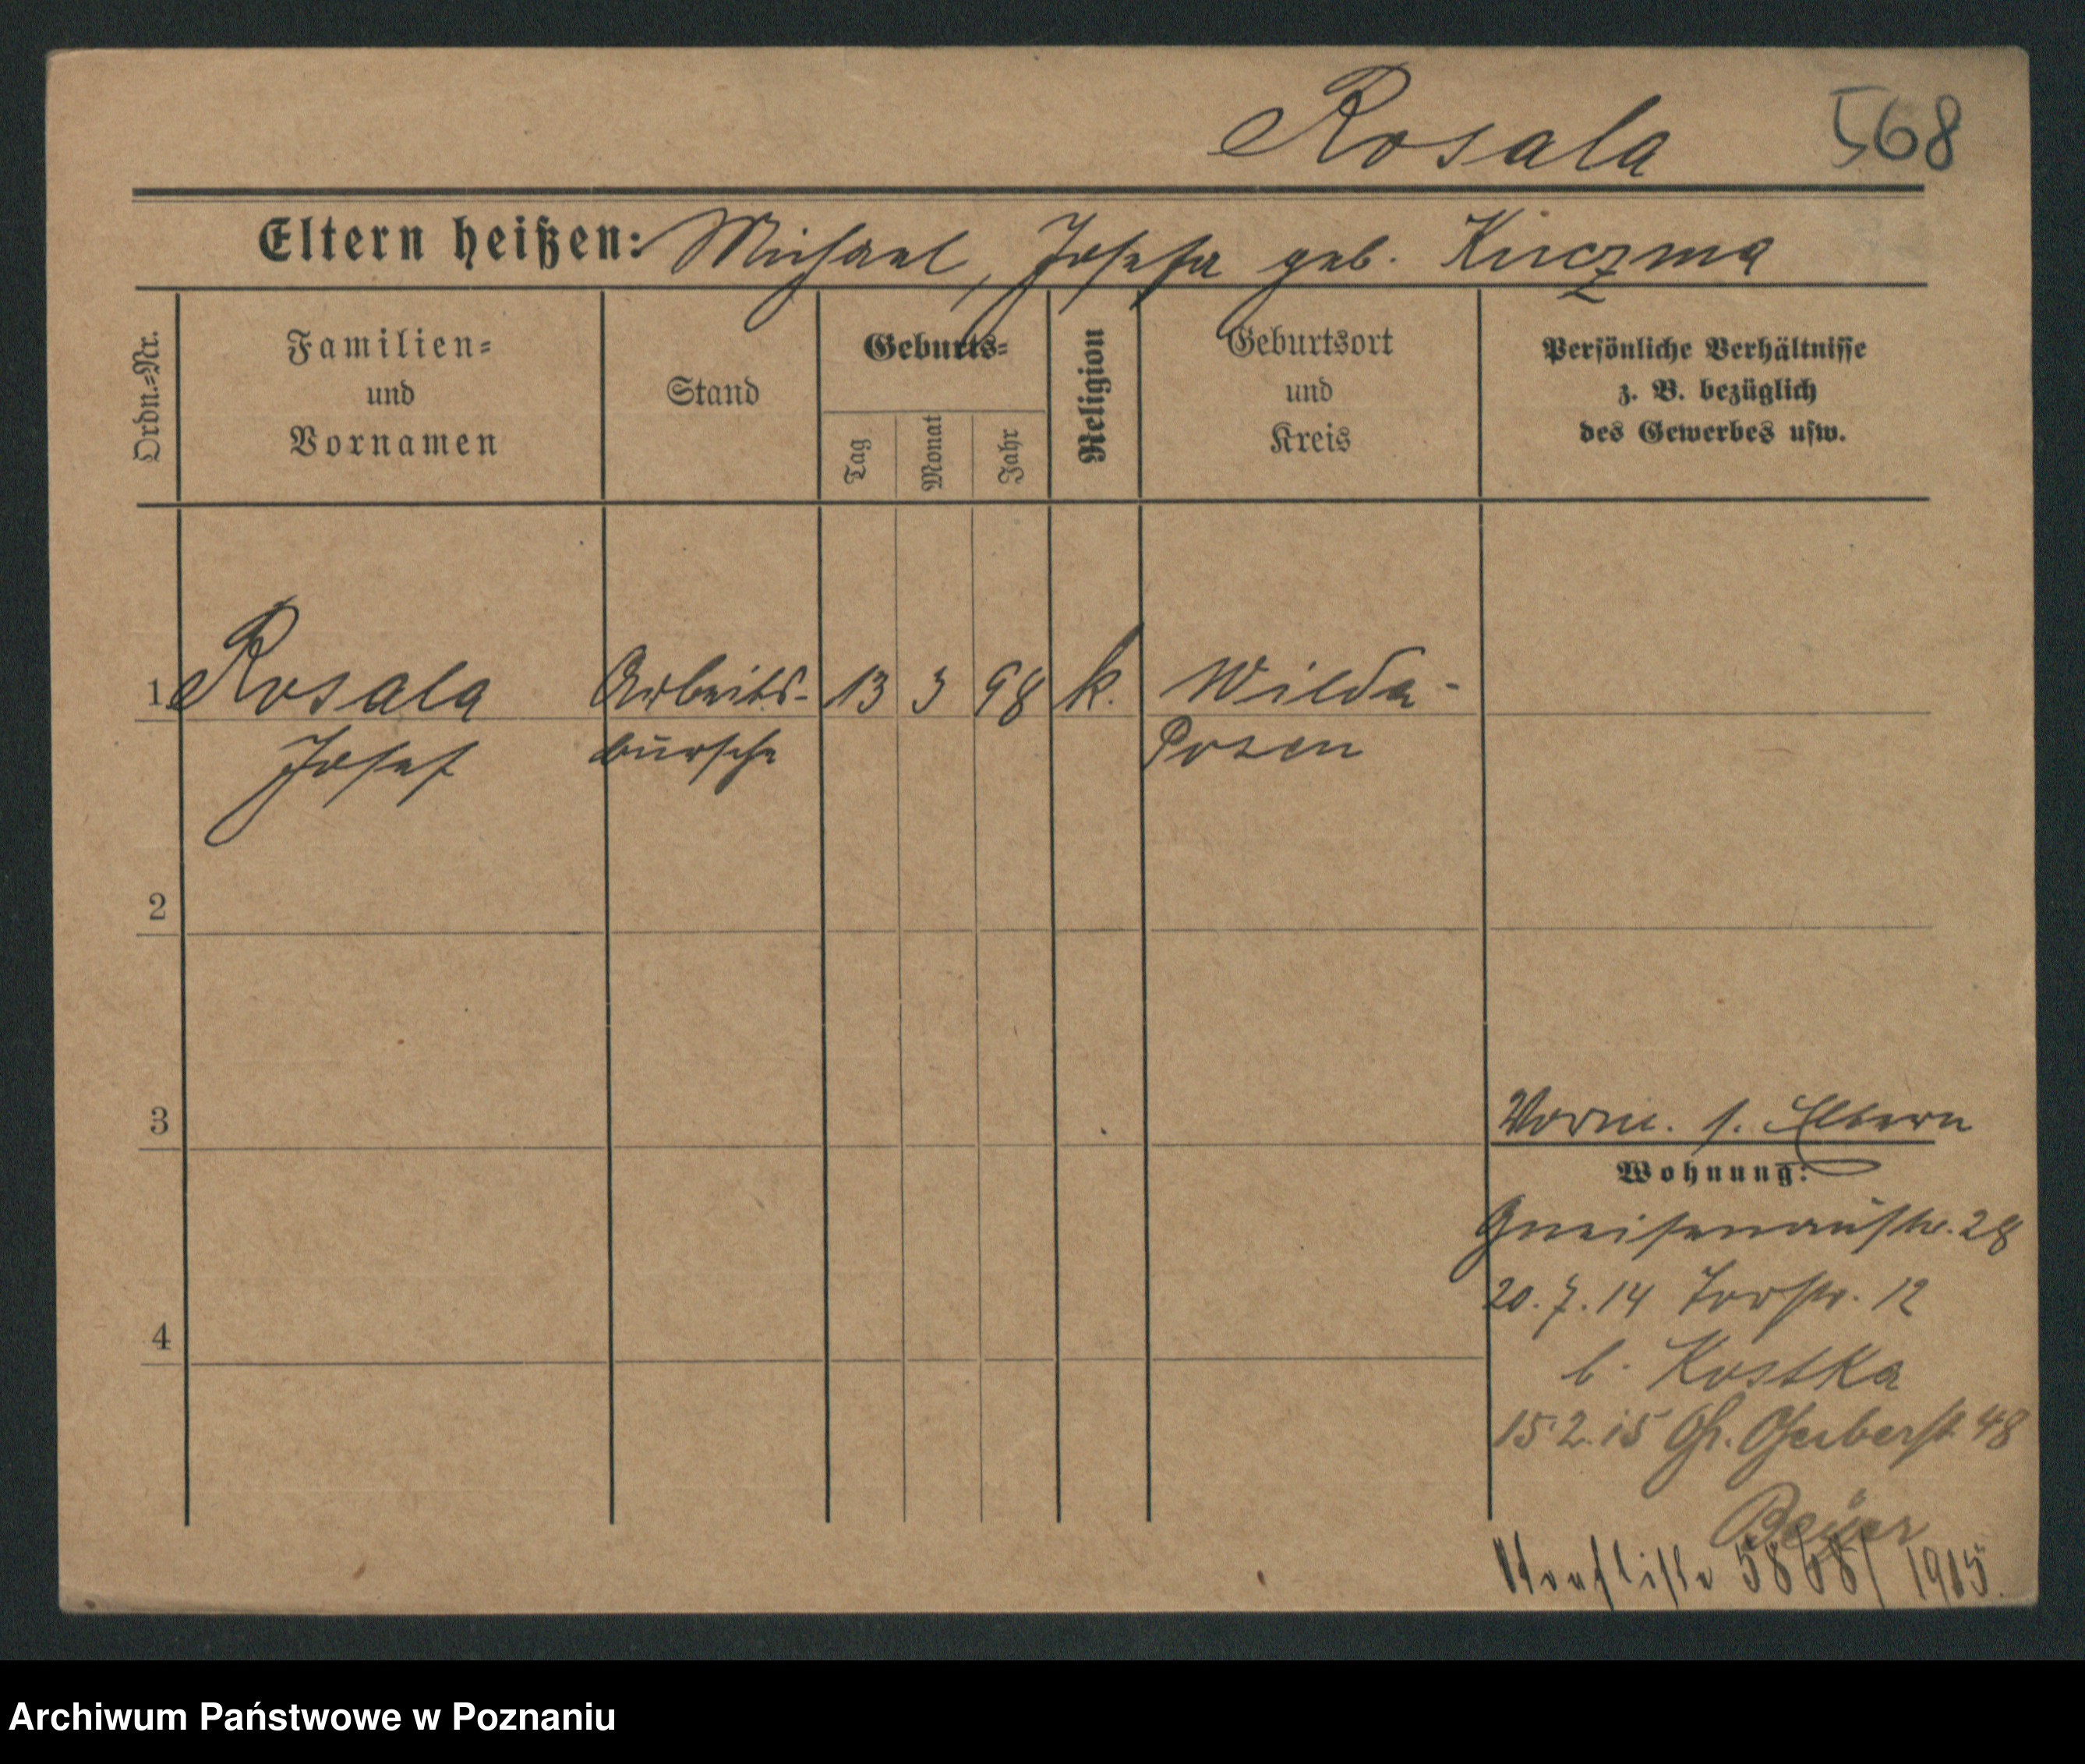 Rosala 568
Eltern heißen: Michael, Josefa geb. Kuczma
Ordn.=Nr.
Familien=
und
Vornamen
Stand
Geburts=
Tag
Monat
Jahr
Religion
Geburtsort
und
Kreis
Persönliche Verhältnisse
z. B. bezüglich
des Gewerbes usw.
1. Rosala Arbeits- 13 3 98 k. Wilda-
Josef bursche Posen
2
3
4
Vorm. s. Eltern
Wohnung:
Gneisenaustr. 28
20. 7. 14 Torstr. 12
b. Kostka
15.2.15 Gr. Gerberstr. 48
Beyer
5868/1915.
Archiwum Państwowe w Poznaniu